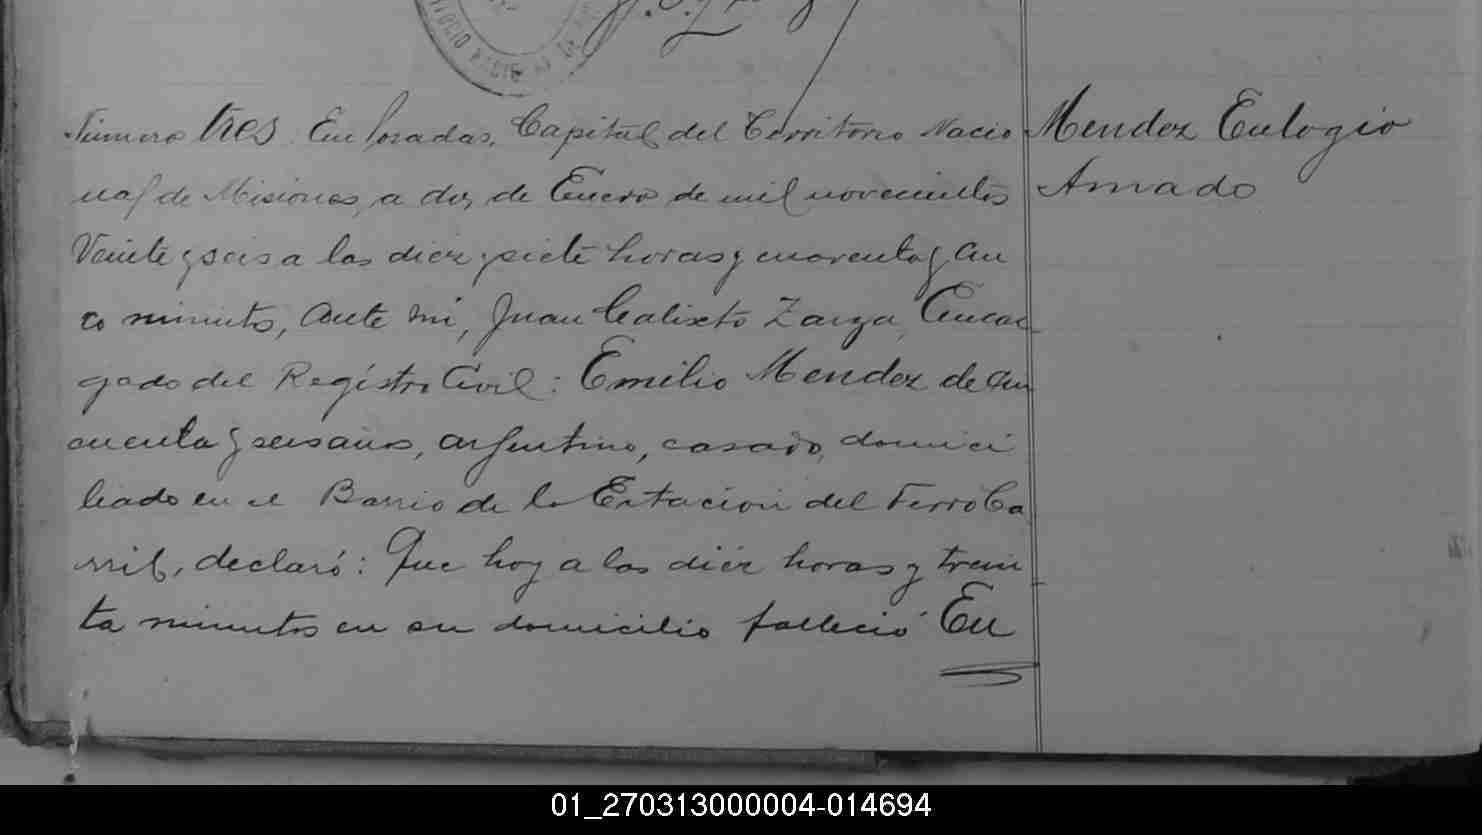 Número tres. En Posadas, Capital del Territorio Nacio
nal de Misiones, a dos de Enero de mil novecientos
Veinte y seis a las diez y siete horas y cuarenta y cin
co minutos, ante mi, Juan Calixto Zarza, Encar
gado del Registro Civil: Emilio Mendez de cin
cuenta y seis años, argentino, casado, domici
liado en el Barrio de la Estación del Ferro Ca
rril, declaró: Que hoy a las diéz horas y trein
ta minutos en su domicilio falleció Eu
Mendez Eulogio
Amado
01_270313000004-014694